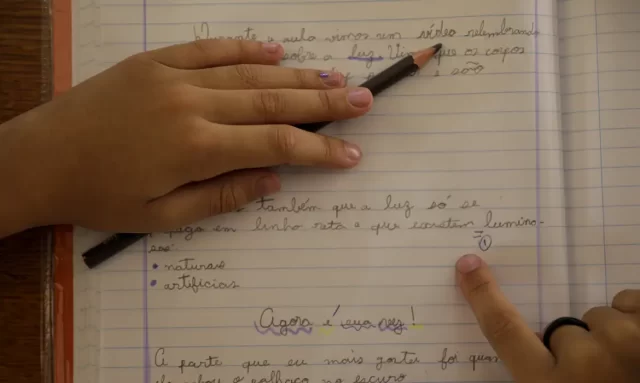 Durante a aula vimos um vídeo relembrando
sobre a luz. Vim que os corpos
e são
também que a luz só se
paga em linha reta e que existem lumino-
sas:
①
• naturais
• artificias
Agora é sua vez!
A parte que eu mais gostei foi quan
o palhaço no escuro